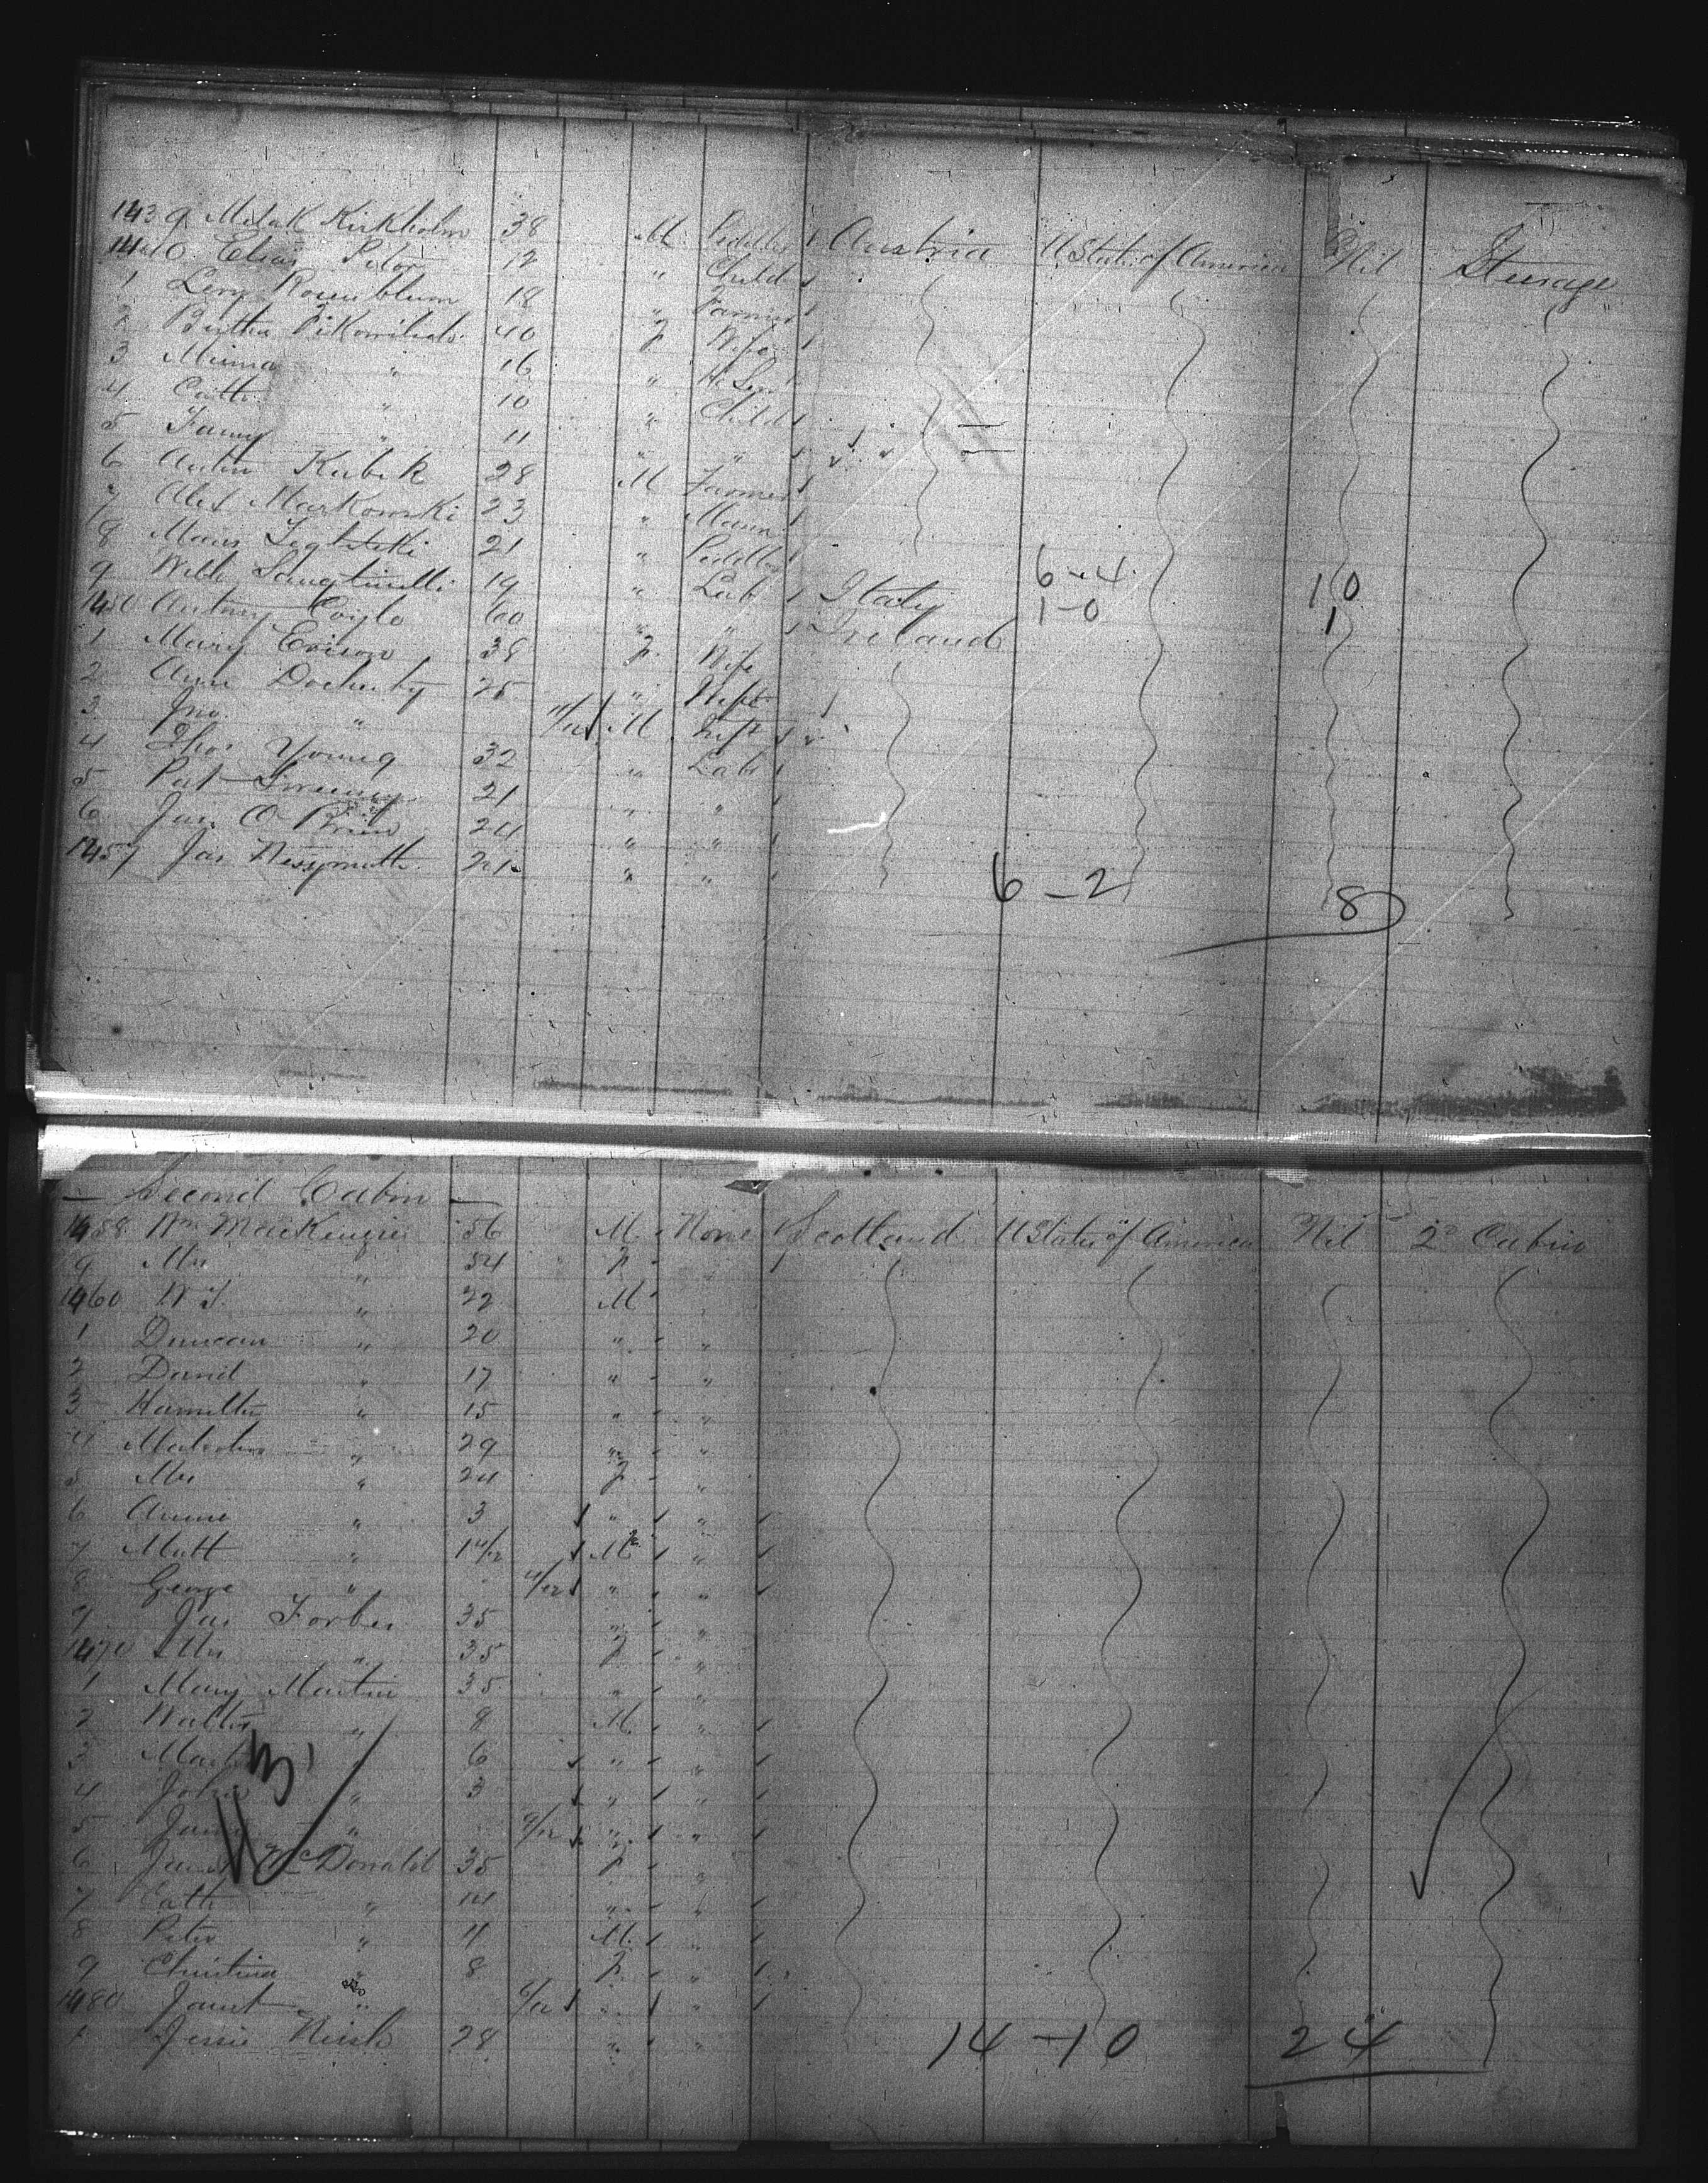 1439 Milak Kirkholm 38 M Peddler Austria U States of America Nil Steerage
1440 Elias Peter 12 " Child
1 Levy Rosenblum 18 " Farmer
2 Bertha 40 F Wife
3 Minna " 16 " H. Serv
4 Cath " 10 " Child
5 Fanny " 11 " "
6 Anton Kubik 28 M Farmer
7 Alex Markowski 23 " Mason
8 21 " Peddler 6-4 10
9 19 " Lab Italy 1-0 1
1450 Antony Coyle 60 " " Ireland
1 Mary 38 F Wife
2 Ann Docherty 25 " Wife
3 Jno. " 11/12 M Inft
4 Thos Young 32 " Lab
5 Pat Sweeney 21 " "
6 Jas. O'Brien 24 " "
1457 Jas 21 " " 6-2 8
— Second Cabin —
1458 Wm MacKenzie 56 M None Scotland U States of America Nil 2nd Cabin
9 Mrs " 54 F
1460 W.J. " 22 M
1 Duncan " 20 " "
2 David " 17 " "
3 Hamilton " 15 " "
4 Malcolm " 29 " "
5 Mrs " 24 F "
6 Annie " 3 " "
7 Matt " 1 M "
8 George " " "
9 Jas Forbes 35 " "
1470 Mrs " 35 F "
1 Mary Martin 35 " "
2 Walter " 8 M "
3 " 6 " "
4 John " 3 " "
5 " " "
6 McDonald 35 F "
7 Cath " 14 " "
8 Peter " M "
9 Christina " 8 F "
1480 Janet " " "
1 Jessie 28 " " 14-10 24